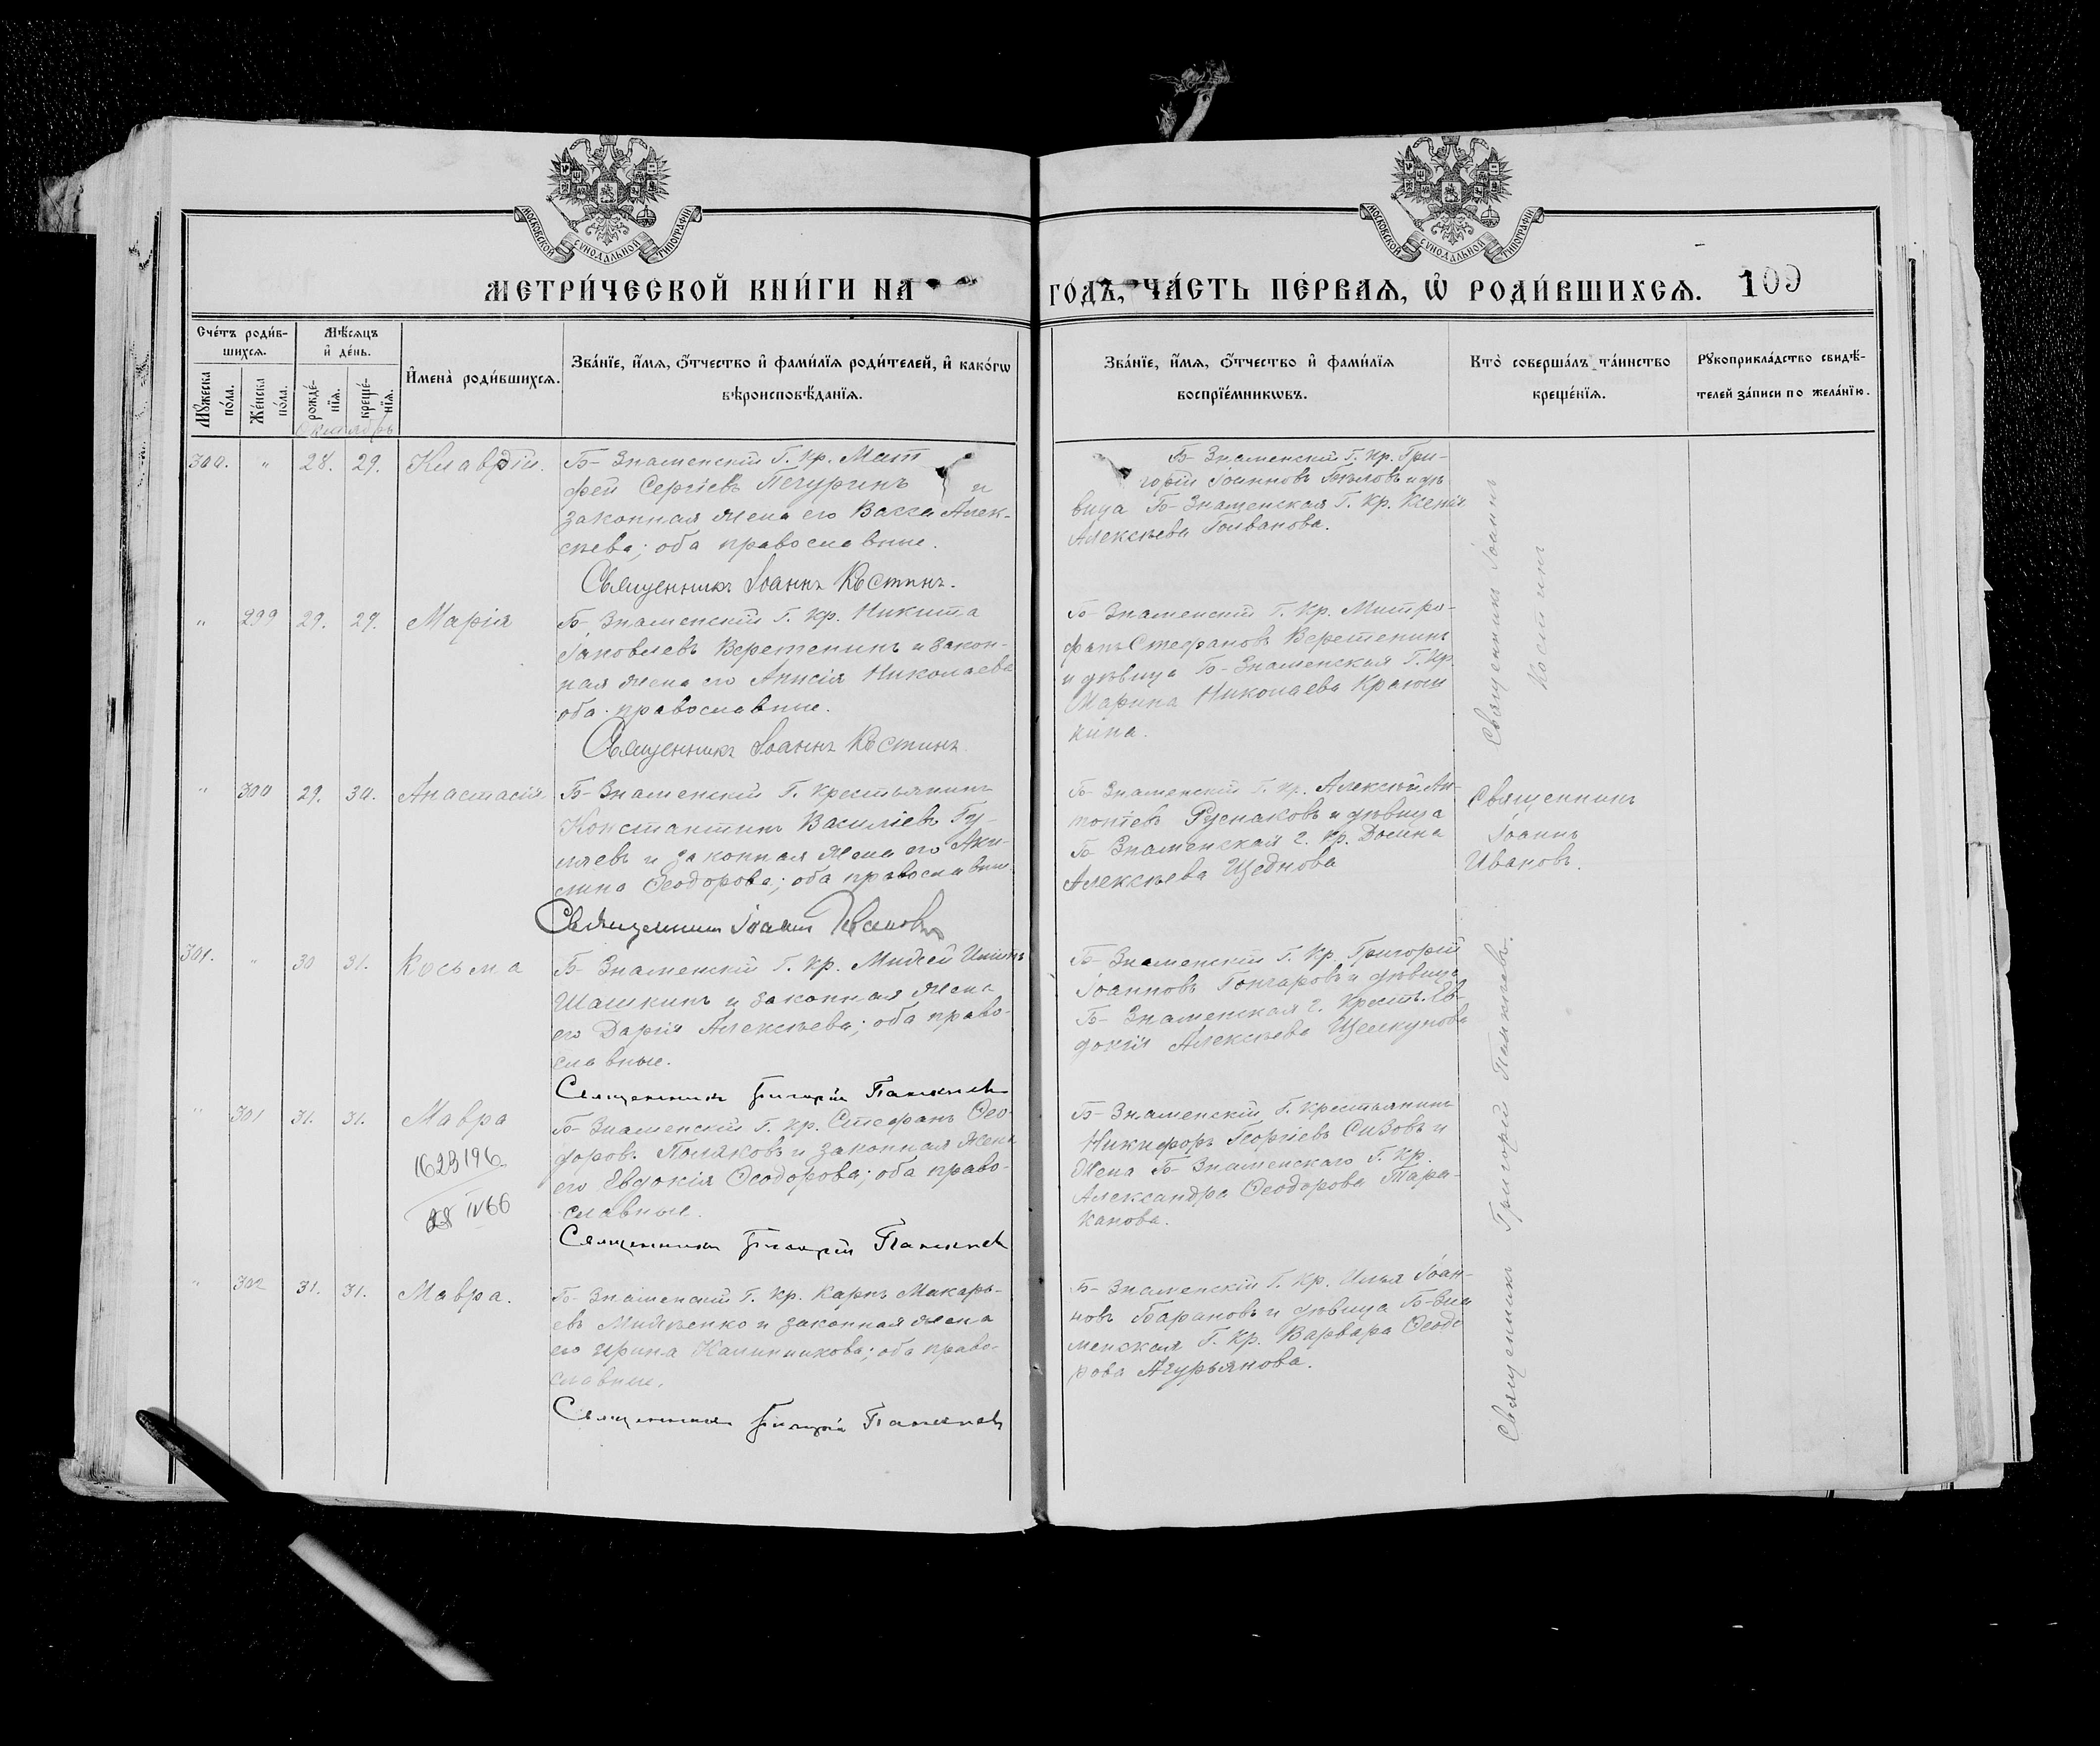 МОСКОВСКОЙ СУНОДАЛЬНОЙ ТИПОГРАФІИ
МОСКОВСКОЙ СУНОДАЛЬНОЙ ТИПОГРАФІИ
МЕТРИ́ЧЕСКОЙ КНИ́ГИ НА
ГО́ДЪ, ЧА́СТЬ ПЕ́РВАѦ, Ѡ҆ РОДИ́ВШИХСѦ. 109
Сче́тъ роди́в-
шихсѧ.
Мꙋ́жеска по́ла.
Же́нска по́ла.
Мѣ́сѧцъ
и҆ де́нь.
рожде́-
нїѧ.
креще́-
нїѧ.
Октябрь
И҆мена̀ роди́вшихсѧ.
Зва́нїе, и҆́мѧ, ѻ҆́тчество и҆ фами́лїѧ роди́телей, и҆ како́гѡ
вѣроисповѣ́данїѧ.
Зва́нїе, и҆́мѧ, ѻ҆́тчество и҆ фами́лїѧ
воспрїе́мникѡвъ.
Кто̀ соверша́лъ та́инство
креще́нїѧ.
Рꙋкоприкла́дство свидѣ́-
телей за́писи по жела́нїю.
300. " 28. 29. Клавдій.
Б-Знаменскій Г. Кр. Мат
фей Сергіевъ Печуринъ и
законная жена его Васса Алек-
сѣева; оба православные.
Священникъ Іоаннъ Костинъ.
Б-Знаменскій Г. Кр. Гри-
горій Іоанновъ Бѣловъ и дѣ
вица Б-Знаменская Г. Кр. Ксенія
Алексѣева Голванова.
Священникъ Іоаннъ
Костинъ
" 299 29. 29. Марія
Б-Знаменскій Г. Кр. Никита
Іаковлевъ Веретенинъ и закон-
ная жена его Анисія Николаева
оба православные.
Священникъ Іоаннъ Костинъ
Б-Знаменскій Г. Кр. Митро-
фанъ Стефановъ Веретенинъ
и дѣвица Б-Знаменская Г. Кр.
Марина Николаева Краюш
кина.
" 300 29. 30. Анастасія
Б-Знаменскій Г. Крестьянинъ
Константинъ Василіевъ Гу-
ляевъ и законная жена его Аки-
лина Ѳеодорова; оба православные.
Священникъ Іоаннъ Ивановъ
Б-Знаменскій Г. Кр. Алексѣй Ан-
тоніевъ Русаковъ и дѣвица
Б-Знаменская Г. Кр. Домна
Алексѣева
Священникъ
Іоаннъ
Ивановъ.
301. " 30 31. Косьма
Б-Знаменскій Г. Кр.
Шашкинъ и законная жена
его Дарія Алексѣева; оба право-
славные.
Священникъ Григорій
Б-Знаменскій Г. Кр. Григорій
Іоанновъ Гончаровъ и дѣвица
Б-Знаменская Г. Крест. Ев-
докія Алексѣева Щелкунова
Священникъ Григорій
" 301 31. 31. Мавра
1623196
28 IV 66
Б-Знаменскій Г. Кр. Стефанъ Ѳео-
доров. Поляковъ и законная жена
его Евдокія Ѳеодорова; оба право-
славные.
Священникъ Григорій
Б-Знаменскій Г. Крестьянинъ
Никифоръ Георгіевъ Сизовъ и
жена Б-Знаменскаго Г. Кр.
Александра Ѳеодорова Тара-
канова.
" 302 31. 31. Мавра.
Б-Знаменскій Г. Кр. Карпъ Макарь-
евъ и законная жена
его Ирина Калинникова; оба право-
славные.
Священникъ Григорій
Б-Знаменскій Г. Кр. Илья Іоан-
новъ Барановъ и дѣвица Б-Зна
менская Г. Кр. Варвара Ѳеодо
рова Агурьянова.